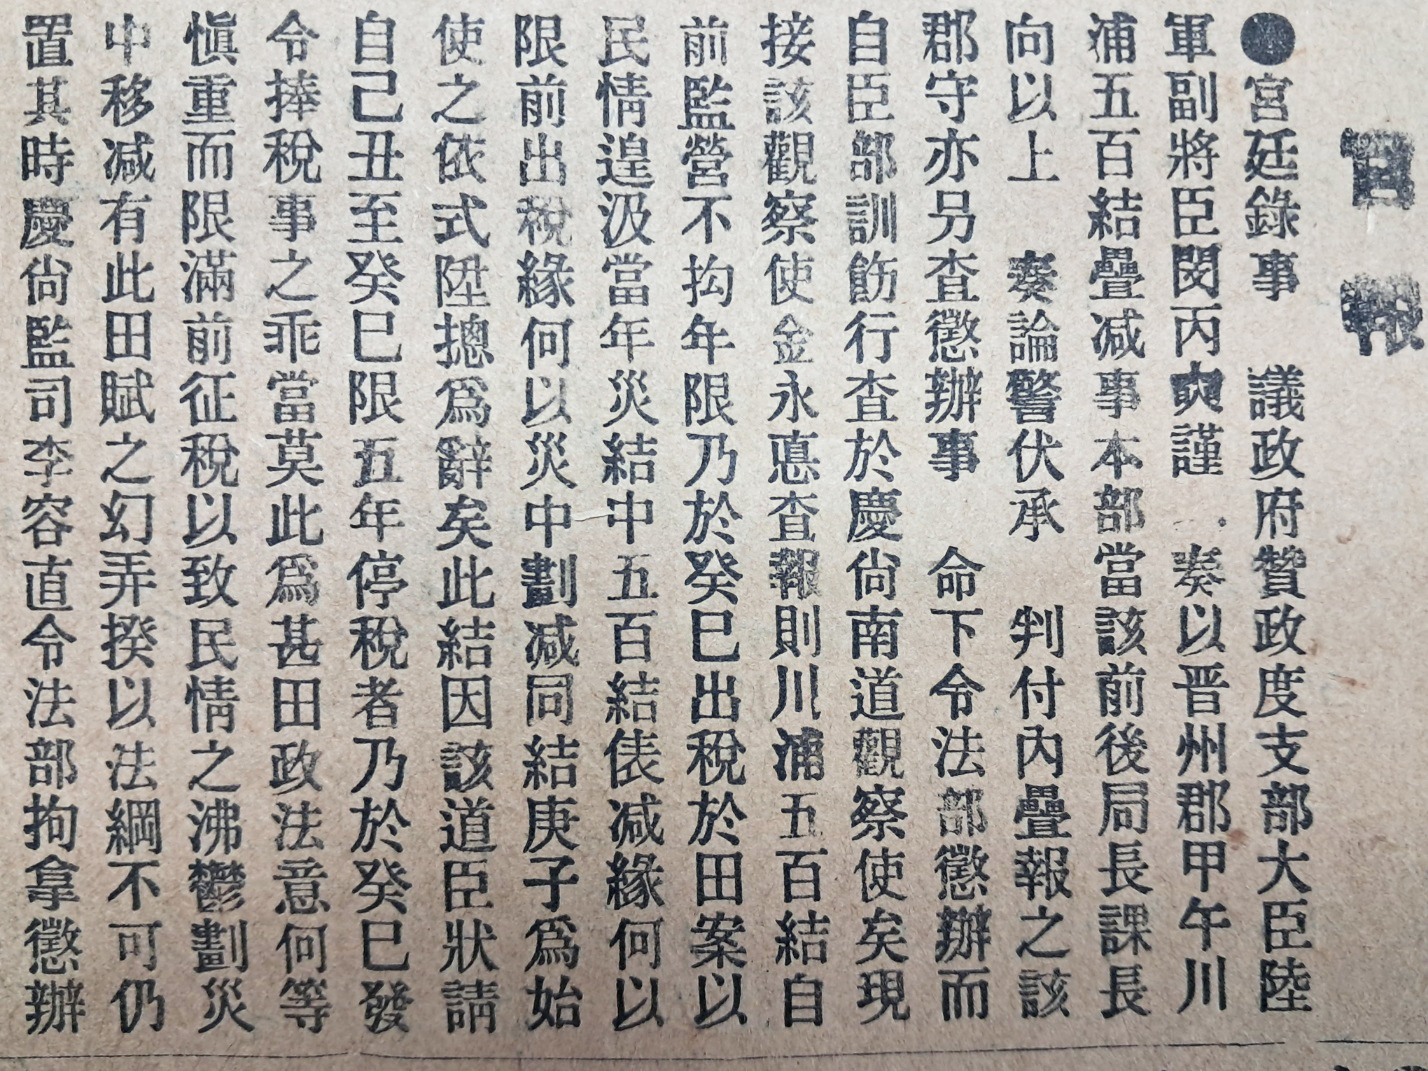 官報
●宮廷錄事　議政府贊政度支部大臣陸
軍副將臣閔丙奭謹　奏以晋州郡甲午川
浦五百結疊减事本部當該前後局長課長
向以上　奏論警伏承　判付內疊報之該
郡守亦另査懲辦事　命下令法部懲辦而
自臣部訓飭行査於慶尙南道觀察使矣現
接該觀察使金永悳査報則川浦五百結自
前監營不拘年限乃於癸巳出稅於田案以
民情遑汲當年災結中五百結俵减緣何以
限前出稅緣何以災中劃减同結庚子爲始
使之依式陞摠爲辭矣此結因該道臣狀請
自己丑至癸巳限五年停稅者乃於癸巳發
令捧稅事之乖當莫此爲甚田政法意何等
愼重而限滿前征稅以致民情之沸鬱劃災
中移减有此田賦之幻弄揆以法綱不可仍
置其時慶尙監司李容直令法部拘拿懲辦